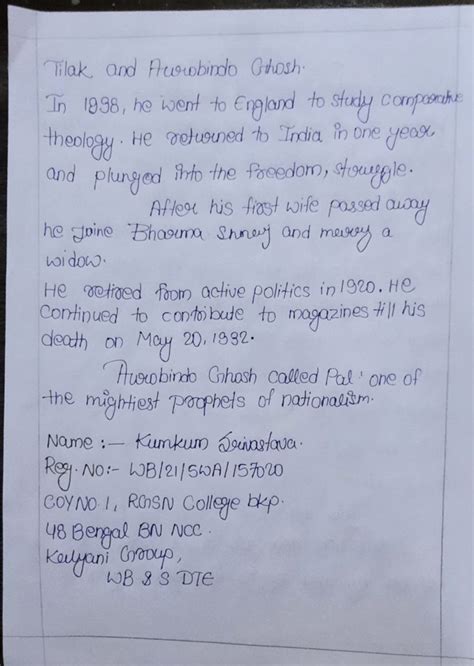 Tilak and Aurobindo Ghosh.
In 1898, he went to England to study comparative
theology. He returned to India in one year
and plunged into the freedom, struggle.
After his first wife passed away
he joine Bharma Shmej and merry a
widow.
He retired from active politics in 1920. He
continued to contribute to magazines till his
death on May 20, 1932.
Aurobindo Ghosh called Pal 'one of
the mightiest prophets of nationalism.
Name :- Kumkum Srivastava.
Reg. NO:- WB/21/SWA/157020
COY NO. 1, RGSN College bkp.
48 Bengal BN NCC.
Kalyani Group,
WB & S DTE